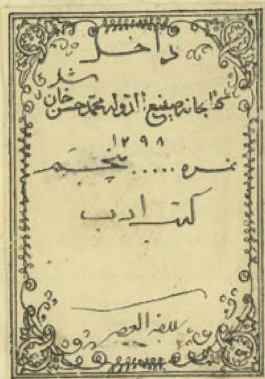 داخل
شد
کتابخانه صنیع الدوله محمد حسن خان
۱۲۹۸
نمره ..... پنجم
کتب ادب